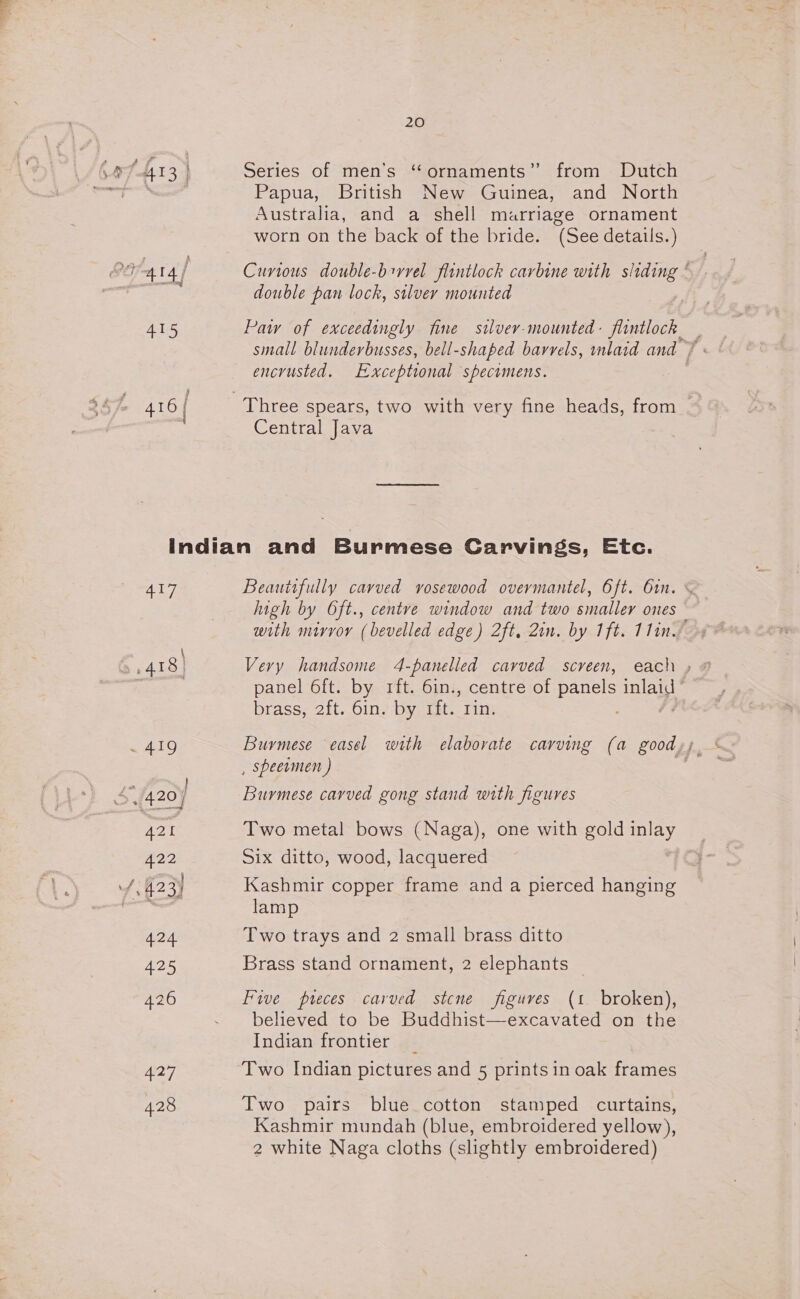 20
413 Series of men's “ornaments” from Dutch
Papua, British New Guinea, and North
Australia, and a shell marriage ornament
worn on the back of the bride. (See details.)
414 Curious double-barrel flintlock carbine with sliding
double pan lock, silver mounted
415 Pair of exceedingly fine silver-mounted flintlock
small blunderbusses, bell-shaped barrels, inlaid and
encrusted. Exceptional specimens.
416 Three spears, two with very fine heads, from
Central Java
Indian and Burmese Carvings, Etc.
417 Beautifully carved rosewood overmantel, 6ft. 6in.
high by 6ft., centre window and two smaller ones
with mirror (bevelled edge) 2ft. 2in. by 1ft. 11in.
418 Very handsome 4-panelled carved screen, each
panel 6ft. by 1ft. 6in., centre of panels inlaid
brass, 2ft. 6in. by 1ft. 1in.
419 Burmese easel with elaborate carving (a good
specimen)
420 Burmese carved gong stand with figures
421 Two metal bows (Naga), one with gold inlay
422 Six ditto, wood, lacquered
423 Kashmir copper frame and a pierced hanging
lamp
424 Two trays and 2 small brass ditto
425 Brass stand ornament, 2 elephants
426 Five pieces carved stone figures (1 broken),
believed to be Buddhist—excavated on the
Indian frontier
427 Two Indian pictures and 5 prints in oak frames
428 Two pairs blue cotton stamped curtains,
Kashmir mundah (blue, embroidered yellow),
2 white Naga cloths (slightly embroidered)